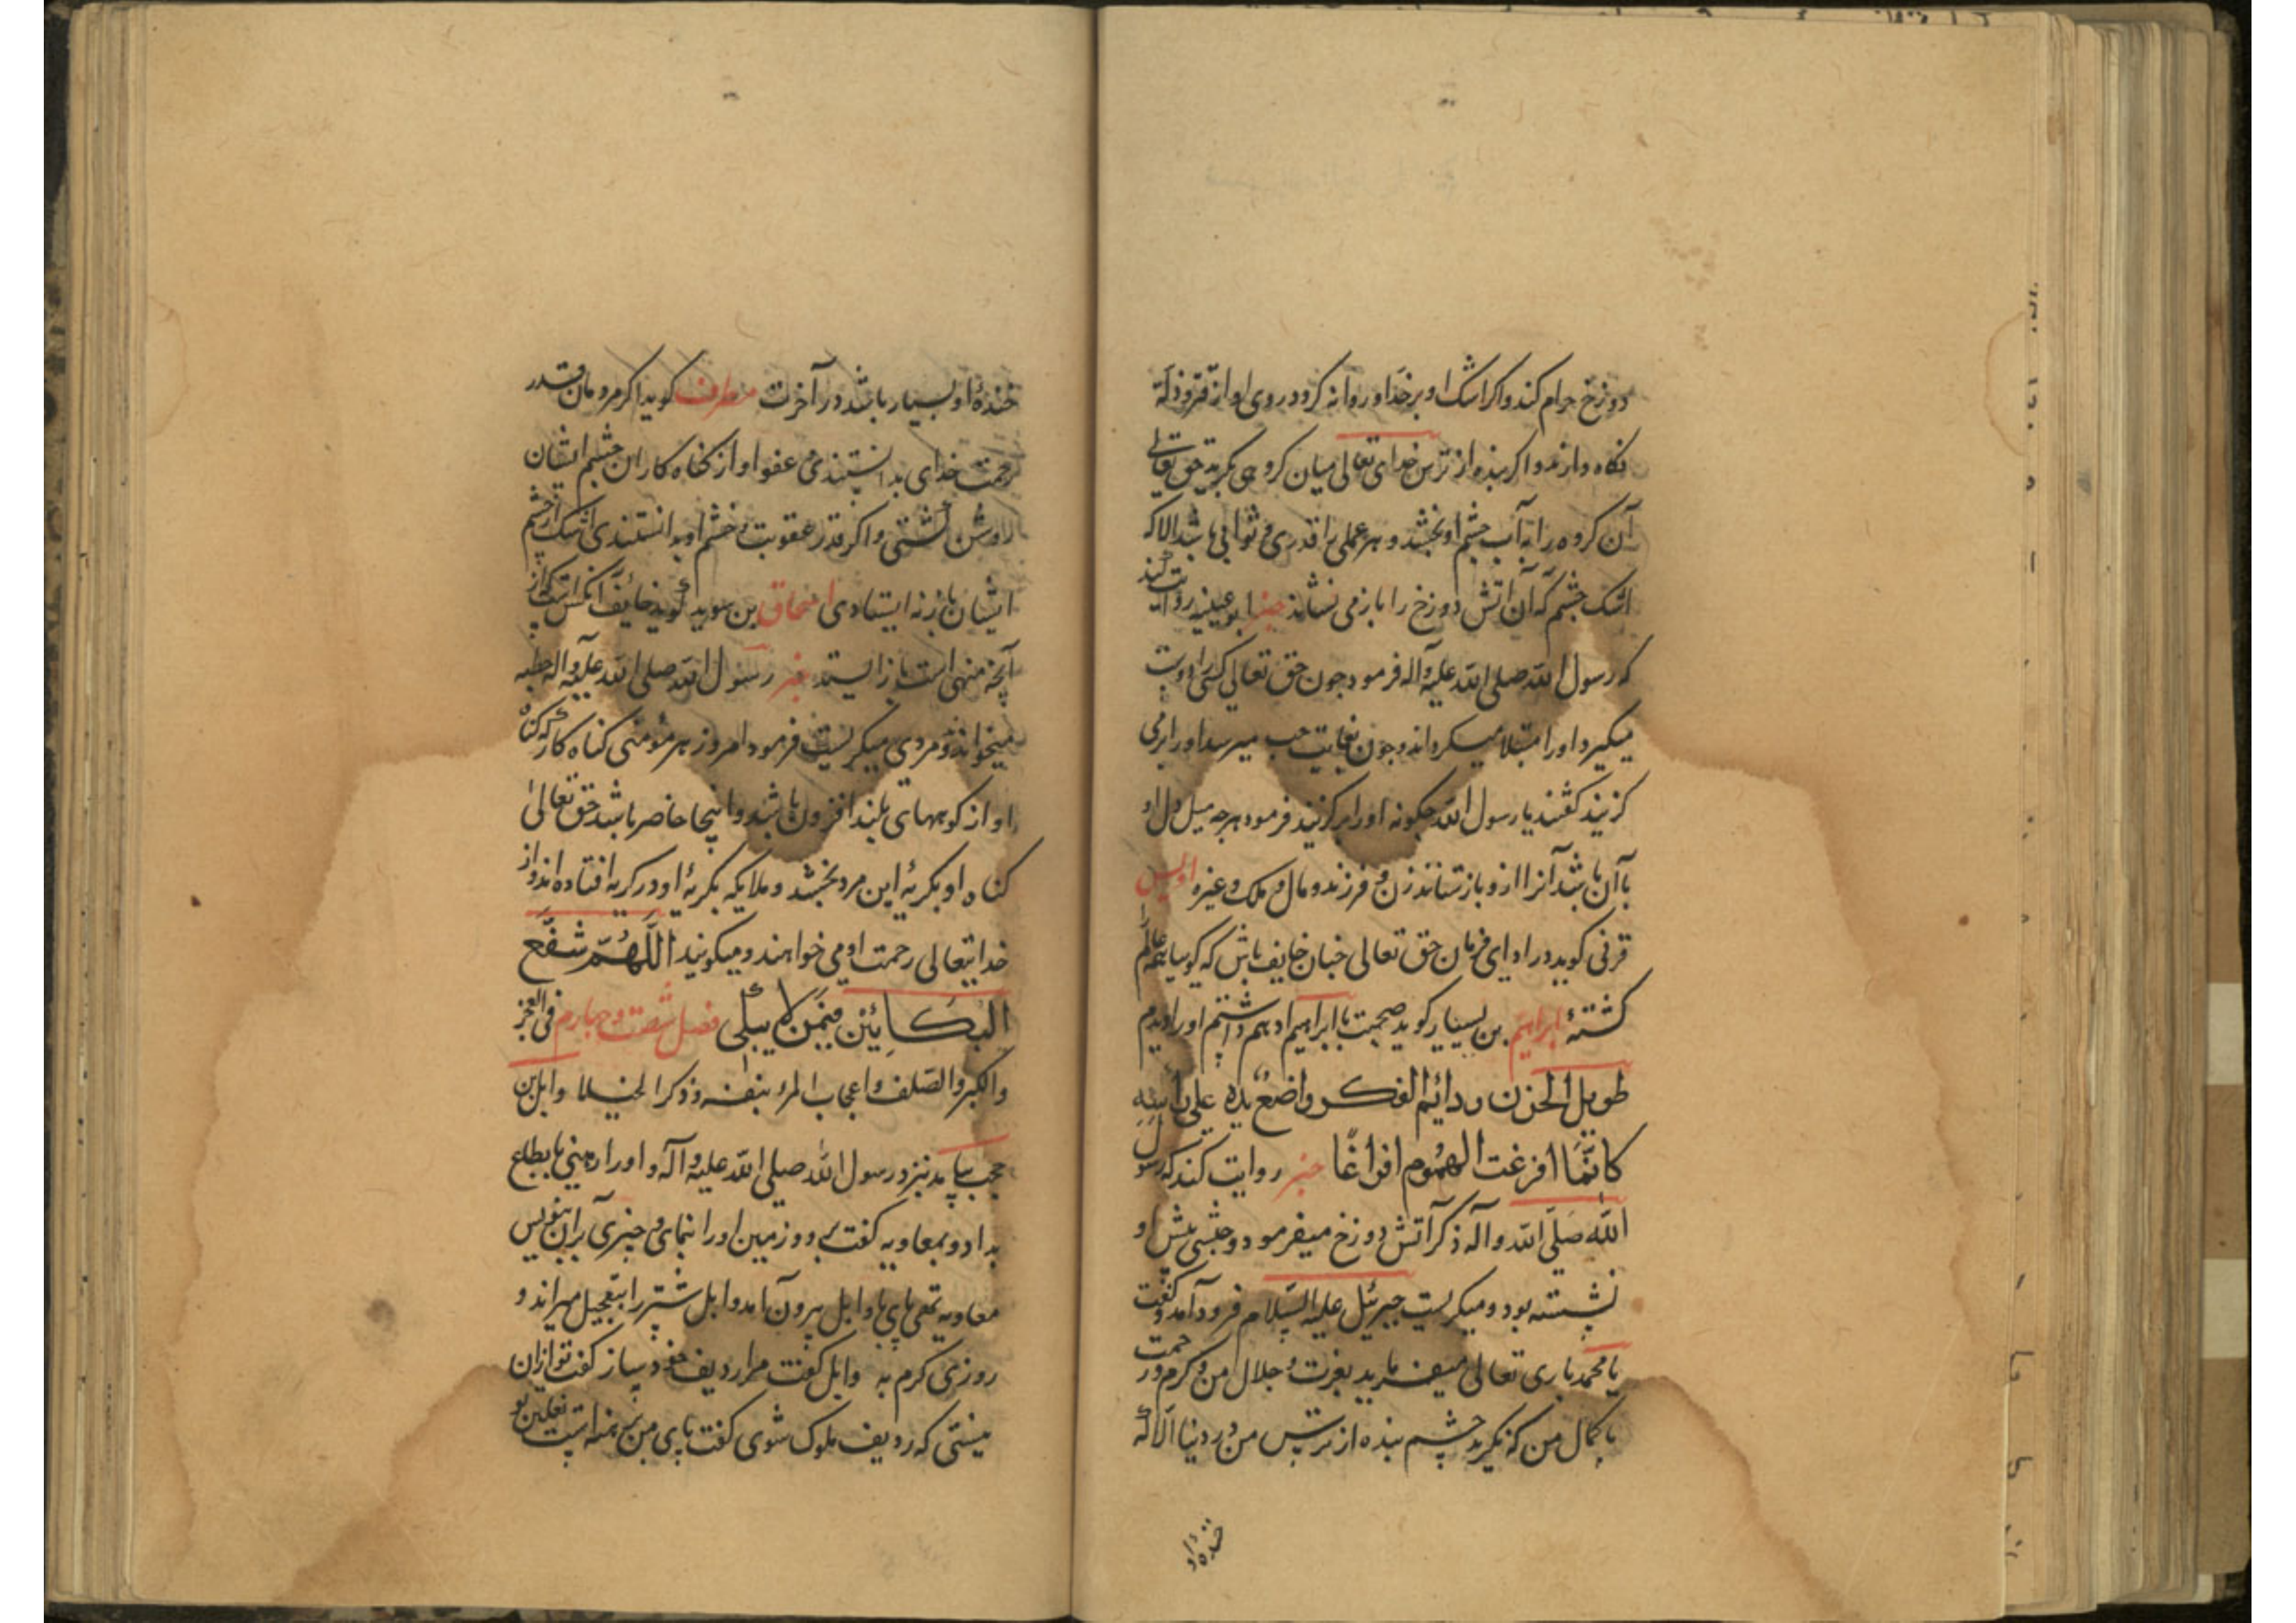 دوزخ حرام کند واکر اشک او بر خد او روانه کردد روی او از قتر و ذلة
نکاه دارند و اکر بنده از ترس خدای تعالی میان کروهی بکرید حق تعالی
آن کروه را به آب چشم او بخشد و هر عملی را قدری و ثوابی باشد الا که
اشک چشم که آن آتش دوزخ را باز می نشاند خبر ابو عیینه روایت کند
که رسول الله صلی الله علیه وآله فرمود جون حق تعالی کسی را دوست
میکیرد او را مبتلا میکرداند و جون بغایت حب میرسد او را برمی
کزیند کفتند یا رسول الله جکونه او را بر کزیند فرمود هر جه میل دل او
با آن باشد آنرا ازو باز ستاند زن و فرزند و مال و ملک و غیره اویس
قرنی کوید در ادای فرمان حق تعالی جنان خایف باش که کویا همه عالم
کشتهٔ ابراهیم بن یسار کوید صحبت با ابراهیم ادهم داشتم او را دیدم
طویل الحزن دائم الفکر واضع یده علی رأسه
کانما افرغت الهموم افراغا خبر روایت کند که رسول
الله صلی الله وآله ذکر آتش دوزخ میفرمود و حبشی پیش او
نشسته بود و میکریست جبرئیل علیه السلام فرود آمد و کفت
یا محمد باری تعالی میفرماید بعزت و جلال من و کرم و رحمت
با کمال من که نکرید چشم بنده از ترس من در دنیا الا که
خنده او
خندهٔ او بسیار باشد در آخرت مطرف کوید اکر مردمان قدر
رحمت خدای بدانستندی و عفو او از کناه کاران چشم ایشان
روشن کشتی و اکر قدر عقوبت و خشم او بدانستندی اشک از چشم
ایشان باز نه ایستادی اسحاق بن سوید کوید خایف آنکس است که از
آنچه منهی است باز ایستد خبر رسول الله صلی الله علیه وآله خطبه
میخواند و مردی میکریست فرمود امروز هر مؤمنی کناه کار که کناه
او از کوههای بلند افزون باشد و اینجا حاضر باشد حق تعالی
کناه او بکریهٔ این مرد بخشد و ملایکه بکریهٔ او در کریه افتاده اند و از
خدایتعالی رحمت او می خواهند و میکویند اللهم شفع
البکائین فیمن لا یبکی فصل شصت و جهارم فی الفخر
والکبر والصلف و اعجاب المرء بنفسه و ذکر الخیلا وابل بن
حجب بیامد نزد رسول الله صلی الله علیه وآله و او را زمینی باقطاع
بداد و بمعاویه کفت برو و زمین او را بنمای و جیزی بر آن بنویس
معاویه تهی پای با وابل بیرون آمد و ابل شتر را بتعجیل میراند و
روزی کرم به وابل کفت مرا ردیف خود ساز کفت تو از آن
نیستی که ردیف ملوک شوی کفت پای من برهنه است نعلین تو